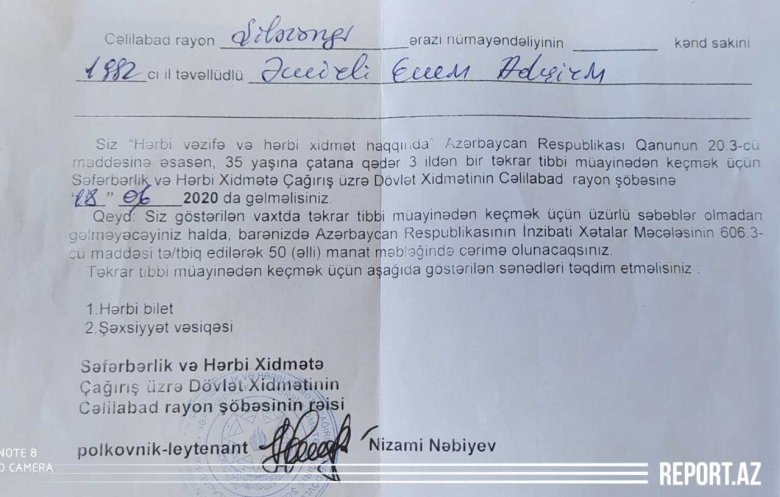 Cəlilabad rayon ərazi nümayəndəliyinin kənd sakini
1992 ci il təvəllüdlü Əmirli
Siz "Hərbi vəzifə və hərbi xidmət haqqında" Azərbaycan Respublikası Qanunun 20.3-cü
maddəsinə əsasən, 35 yaşına çatana qədər 3 ildən bir təkrar tibbi müayinədən keçmək üçün
Səfərbərlik və Hərbi Xidmətə Çağırış üzrə Dövlət Xidmətinin Cəlilabad rayon şöbəsinə
"18" 06 2020 da gəlməlisiniz.
Qeyd: Siz göstərilən vaxtda təkrar tibbi müayinədən keçmək üçün üzürlü səbəblər olmadan
gəlməyəcəyiniz halda, barənizdə Azərbaycan Respublikasının İnzibati Xətalar Məcələsinin 606.3-
cü maddəsi tə/tbiq edilərək 50 (əlli) manat məbləğində cərimə olunacaqsınız.
Təkrar tibbi müayinədən keçmək üçün aşağıda göstərilən sənədləri təqdim etməlisiniz :
1.Hərbi bilet
2.Şəxsiyyət vəsiqəsi
Səfərbərlik və Hərbi Xidmətə
Çağırış üzrə Dövlət Xidmətinin
Cəlilabad rayon şöbəsinin rəisi
polkovnik-leytenant Nizami Nəbiyev
NOTE 8
CAMERA
REPORT.AZ